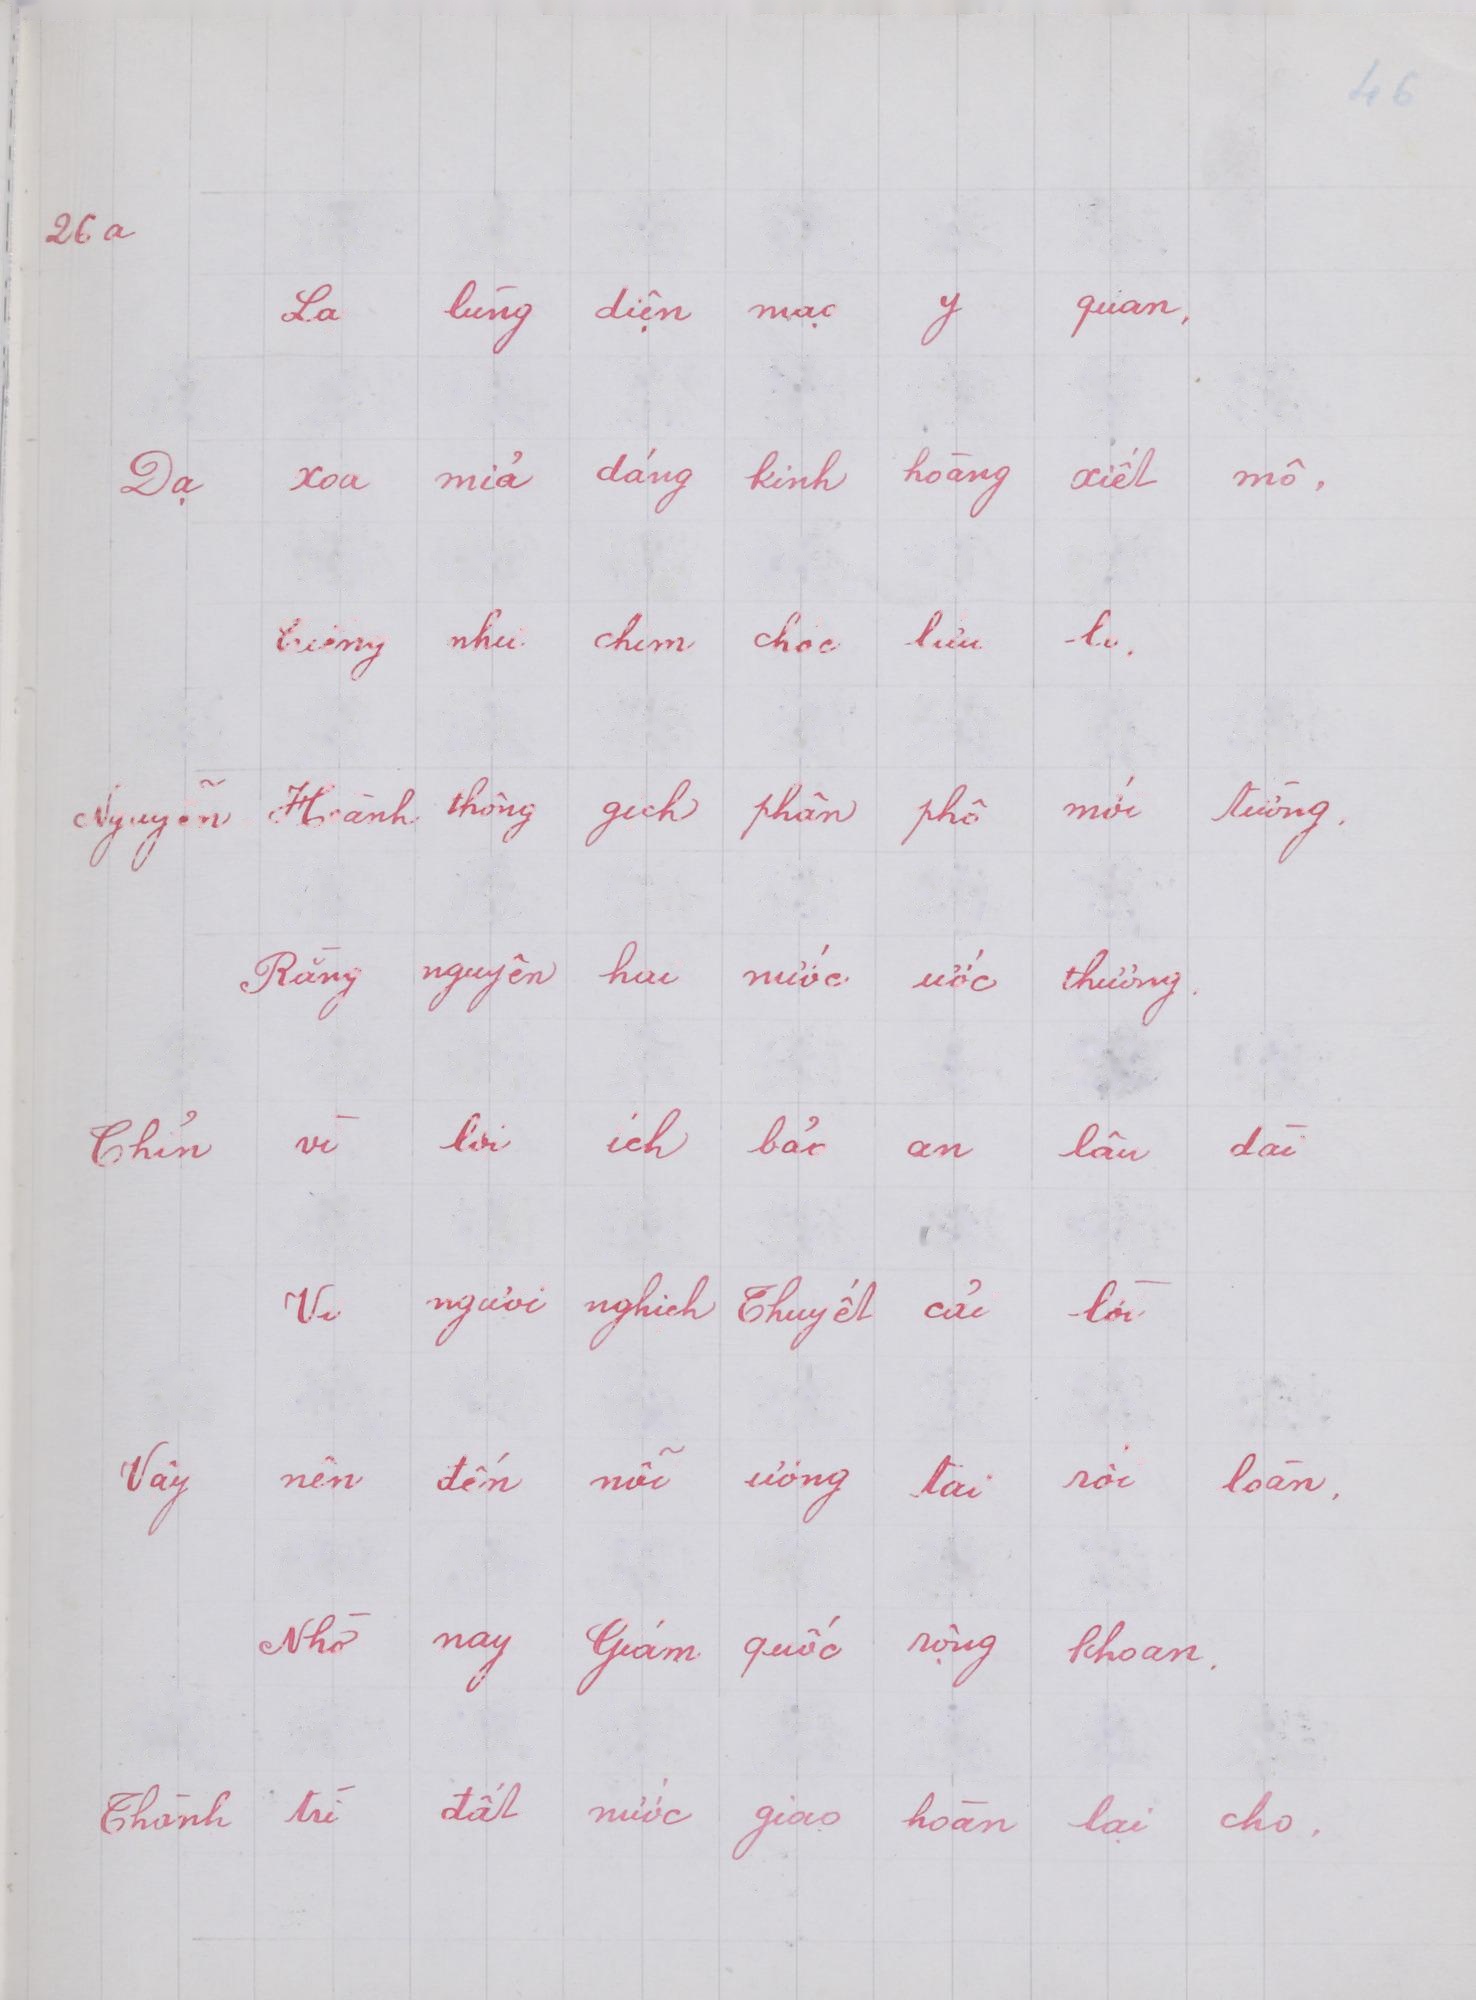 46
26a
La lùng diện mạc y quan,
Dạ xoa miả dáng kinh hoàng xiết mô,
tiếng như chim choc líu lo,
Nguyễn Hoành thông gịch phân phô mới tường,
Rằng nguyên hai nước ước thương,
Chỉn vì lợi ích bảo an lâu dài
Vì người nghịch Thuyết cải lời
Vậy nên đến nỗi ương tai rối loàn,
Nhờ nay Giám quốc rộng khoan,
Thành trì đất nước giao hoàn lại cho,